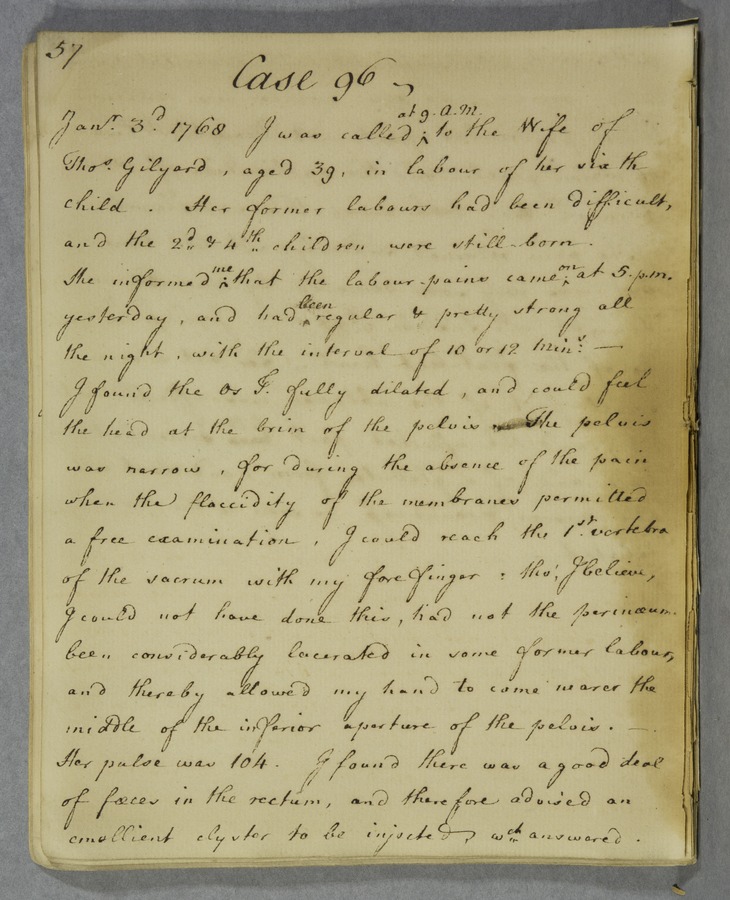 57
Case 96
Jany. 3d 1768 I was called ^at 9. A.M. to the Wife of
Thos. Gilyard, aged 39, in labour of her sixth
child. Her former labours had been difficult,
and the 2d & 4th children were still-born.
She informed ^me that the labour-pains came ^on at 5. p.m.
yesterday, and had ^been regular & pretty strong all
the night, with the interval of 10 or 12 Mins. —
I found the Os T. fully dilated, and could feel
the head at the brim of the pelvis. The pelvis
was narrow, for during the absence of the pain
when the flaccidity of the membranes permitted
a free examination, I could reach the 1st vertebra
of the sacrum with my fore finger: tho', I believe,
I could not have done this, had not the perinæum
been considerably lacerated in some former labour,
and thereby allowed my hand to come nearer the
middle of the inferior aperture of the pelvis. —
Her pulse was 104. I found there was a good deal
of fæces in the rectum, and therefore advised an
emollient clyster to be injected, wch answered.